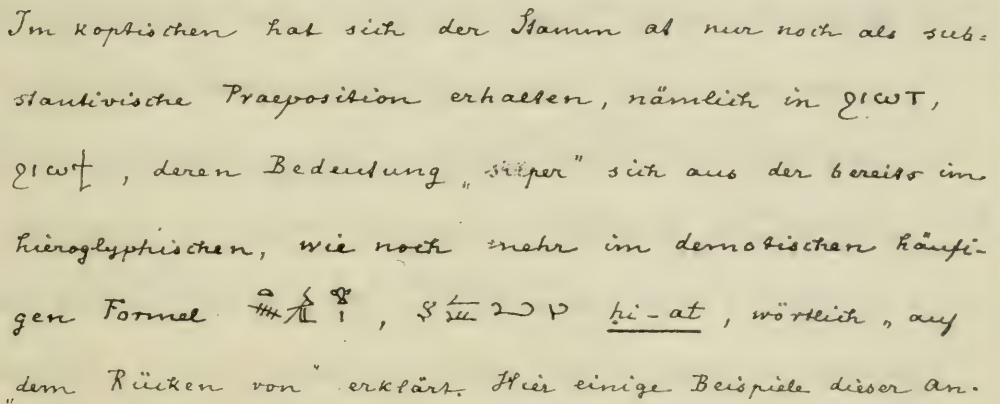 Im koptischen hat sich der Stamm at nur noch als sub=
stantivische Praeposition erhalten, nämlich in ϩⲓⲱⲧ,
ϩⲓⲱϯ, deren Bedeutung „super" sich aus der bereits im
hieroglyphischen, wie noch mehr im demotischen häufi-
gen Formel , hi-at, wörtlich „auf
„dem Rücken von" erklärt. Hier einige Beispiele dieser An-